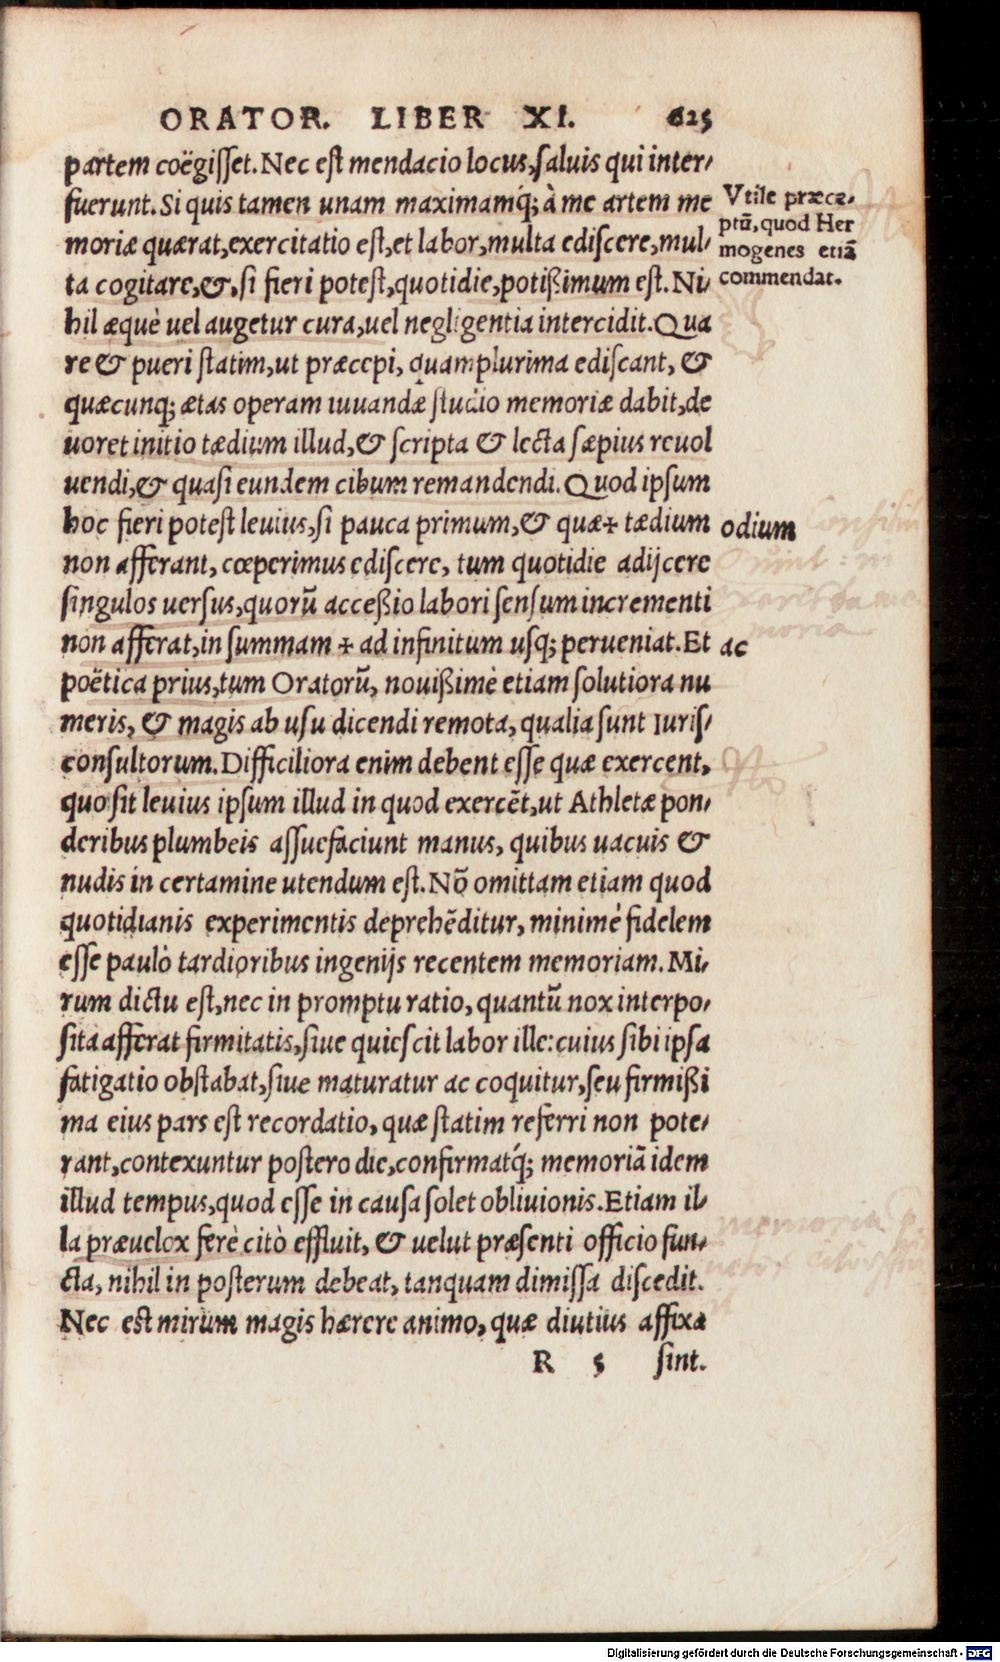 ORATOR. LIBER XI. 625
partem coëgisset. Nec est mendacio locus, saluis qui inter-
fuerunt. Si quis tamen unam maximamq́; à me artem me
moriæ quærat, exercitatio est, et labor, multa ediscere, mul-
ta cogitare, &, si fieri potest, quotidie, potißimum est. Ni-
hil æquè uel augetur cura, uel negligentia intercidit. Qua
re & pueri statim, ut præcepi, quamplurima ediscant, &
quæcunq; ætas operam iuuandæ studio memoriæ dabit, de
uoret initio tædium illud, & scripta & lecta sæpius reuol
uendi, & quasi eundem cibum remandendi. Quod ipsum
hoc fieri potest leuius, si pauca primum, & quæ+ tædium
non afferant, cœperimus ediscere, tum quotidie adijcere
singulos uersus, quorũ acceßio labori sensum incrementi
non afferat, in summam + ad infinitum usq; perueniat. Et
poëtica prius, tum Oratorũ, nouißimè etiam solutiora nu
meris, & magis ab usu dicendi remota, qualia sunt Iuris-
consultorum. Difficiliora enim debent esse quæ exercent,
quo sit leuius ipsum illud in quod exercẽt, ut Athletæ pon-
deribus plumbeis assuefaciunt manus, quibus uacuis &
nudis in certamine utendum est. Nõ omittam etiam quod
quotidianis experimentis deprehẽditur, minimè fidelem
esse paulò tardioribus ingenijs recentem memoriam. Mi-
rum dictu est, nec in promptu ratio, quantũ nox interpo-
sita afferat firmitatis, siue quiescit labor ille: cuius sibi ipsa
fatigatio obstabat, siue maturatur ac coquitur, seu firmißi
ma eius pars est recordatio, quæ statim referri non pote-
rant, contexuntur postero die, confirmatq́; memoriã idem
illud tempus, quod esse in causa solet obliuionis. Etiam il-
la præuelox ferè citò effluit, & uelut præsenti officio fun-
cta, nihil in posterum debeat, tanquam dimissa discedit.
Nec est mirum magis hærere animo, quæ diutius affixa
R 5 sint.
Vtile præce-
ptũ, quod Her
mogenes etiã
commendat.
odium
ac
memoria
Digitalisierung gefördert durch die Deutsche Forschungsgemeinschaft - DFG